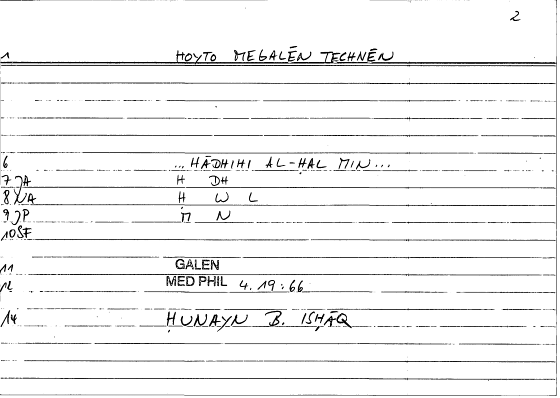 2
1 HOYTO MEGALĒN TECHNĒN
6 ...HĀDHIHI AL-ḤAL MIN...
7 JA H DH
8 NA Ḥ W L
9 JP M N
10 SF
11 GALEN
12 MED PHIL 4.19:66
14 ḤUNAYN B. ISḤĀQ